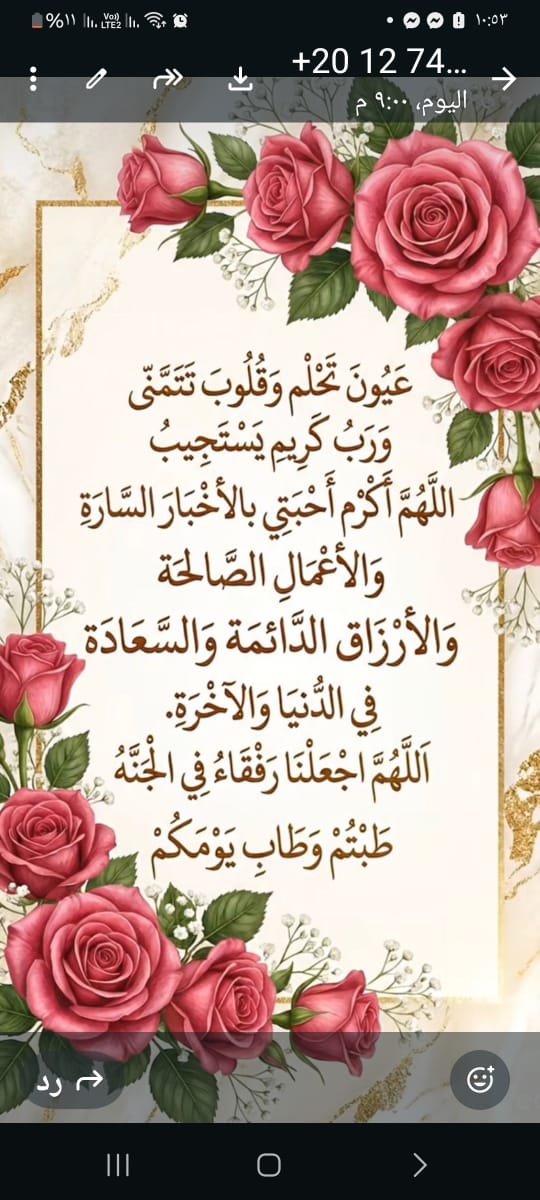 ١٠:٥٣
%١١
Vo)) LTE2
+20 12 74...
اليوم، ٩:٠٠ م
عَيُونَ تَحْلْم وَقُلُوبَ تَتَمَّنّى
وَرَبُ كَرِيمِ يَسْتَجِيبُ
اللَّهُمَّ أَكْرْم أَحْبَتِي بالأخْبَارَ السَّارَةِ
وَالأعْمَالِ الصَّالحَة
وَالأرْزَاق الدَّائمَة وَالسَّعَادَة
فِي الدُّنيَا وَالآخْرَةِ.
اَللَّهُمَّ اجْعَلْنَا رَفْقَاءُ فِي الْجَنَّهُ
طَبْتُمْ وَطَابِ يَوْمَكُمْ
رد